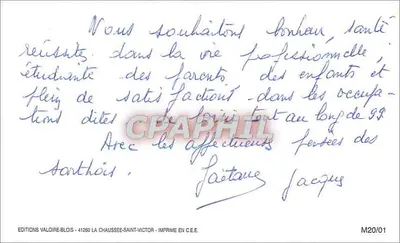 Nous souhaitons bonheur, santé
réussite, dans la vie professionnelle,
étudiante des parents, des enfants et
plein de satisfactions dans les occupa-
tions dites de loisirs tout au long de 99.
Avec les affectueuses pensées des
sarthois.
Gaëtane Jacques
CPAPHIL
EDITIONS VALOIRE-BLOIS - 41260 LA CHAUSSEE-SAINT-VICTOR - IMPRIME EN C.E.E.
M20/01